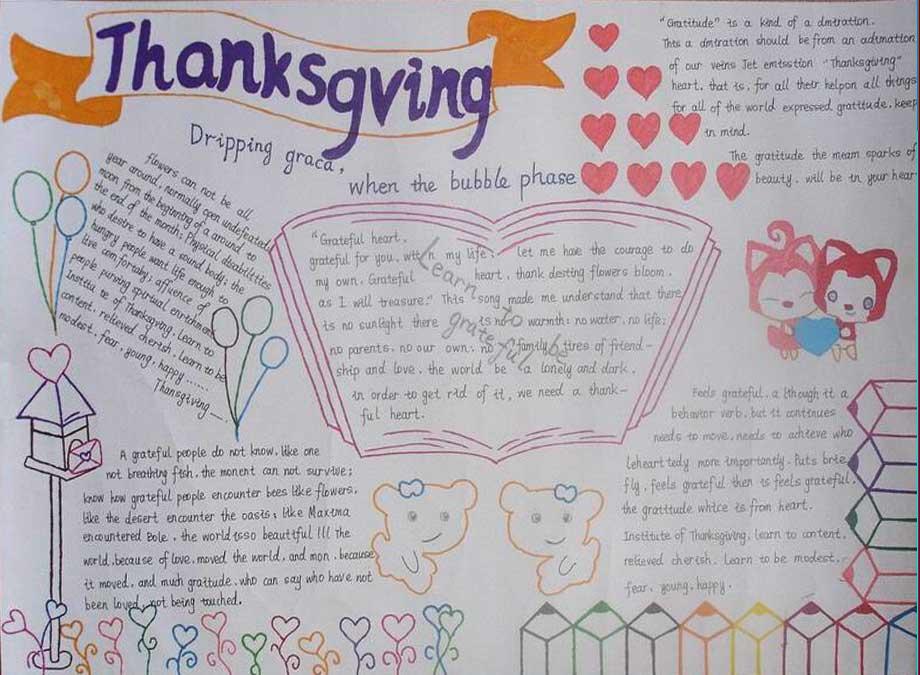 Thanksgving
Dripping graca,
when the bubble phase
"Gratitude" is a kind of a dmtration.
This a dmtration should be from an adtmation
of our veins Jet emisstion "Thanksgiving"
heart, that is, for all their helpon all things
for all of the world expressed gratitude, keep
in mind.
The gratitude the meam sparks of
beauty, will be in your hear
flowers can not be all
year around, normally open undefeated;
moon from the beginning of a around to
the end of the month; Physical disabilities
who desire to have a sound body; the
hungry people want life enough to
live comfortably; affluence of
people pursving spiritual enrichment
Institute of Thanksgiving, learn to
content, relieved cherish, learn to be
modest, fear, young, happy ......
Thansgiving—
"Grateful heart,
grateful for you, with in my life; let me have the courage to do
my own. Grateful heart, thank desting flowers bloom,
as I will treasure." This song made me understand that there
is no sunlight there is no warmth; no water, no life;
no parents, no our own; no family tires of friend-
ship and love, the world be a lonely and dark.
in order to get rid of it, we need a thank-
ful heart.
Learn to be
grateful
A grateful people do not know, like one
not breathing fish, the monent can not survive;
know how grateful people encounter bees like flowers,
like the desert encounter the oasis; like Maxima
encountered Bole, the world isso beautiful !!! The
world, because of love, moved the world, and mon, because
it moved, and much graitude, who can say who have not
been loved, not being touched.
Feels grateful, a lthough it a
behavior verb, but it continues
needs to move, needs to achieve who
leheart tedy more importantly. Puts brie
fly, feels grateful then is feels grateful,
the gratitude whtce is from heart.
Institute of Thanksgiving, learn to content,
relieved cherish. Learn to be modest,
fear, young, happy.